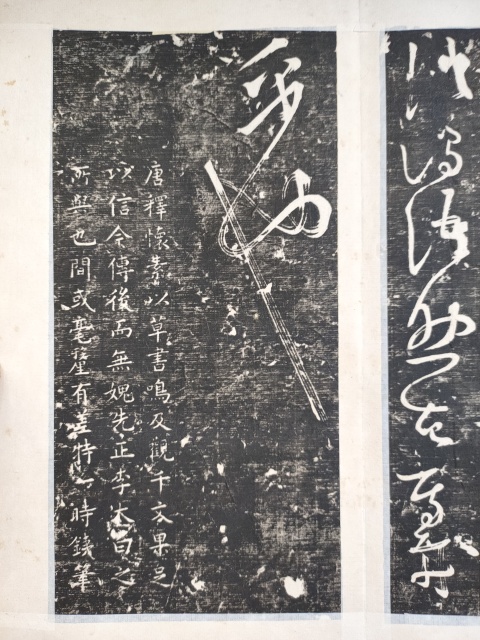 誚謂語助者焉哉
乎也
唐釋懷素以草書鳴及觀千文果足
以信今傳後而無媿先正李太白之
所與也間或毫釐有差特一時筆